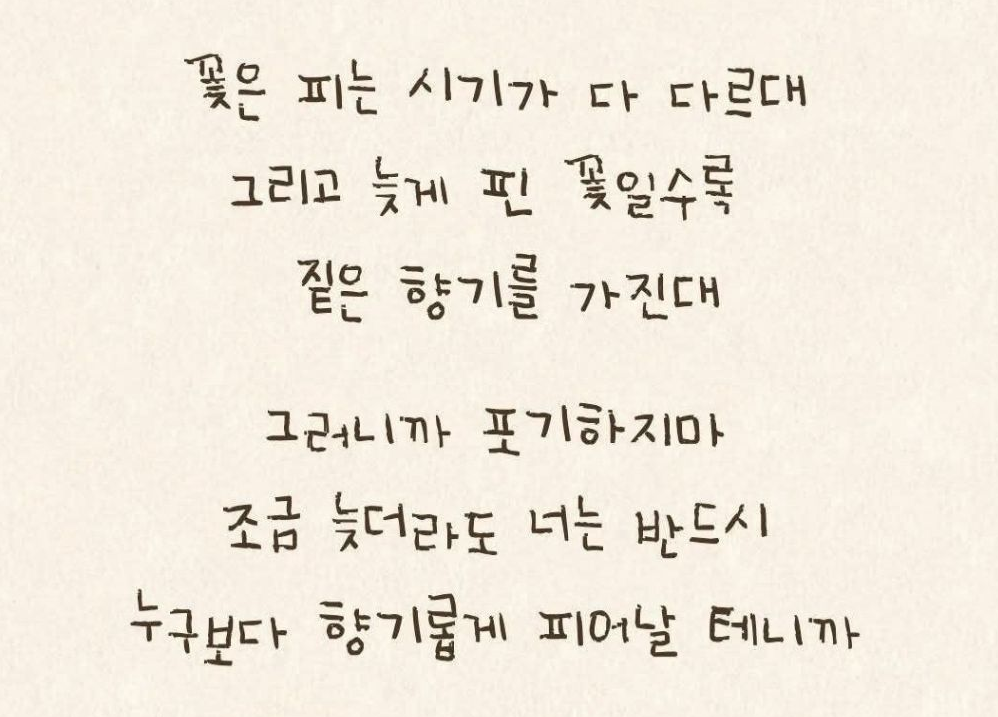 꽃은 피는 시기가 다 다르대
그리고 늦게 핀 꽃일수록
짙은 향기를 가진대
그러니까 포기하지마
조금 늦더라도 너는 반드시
누구보다 향기롭게 피어날 테니까